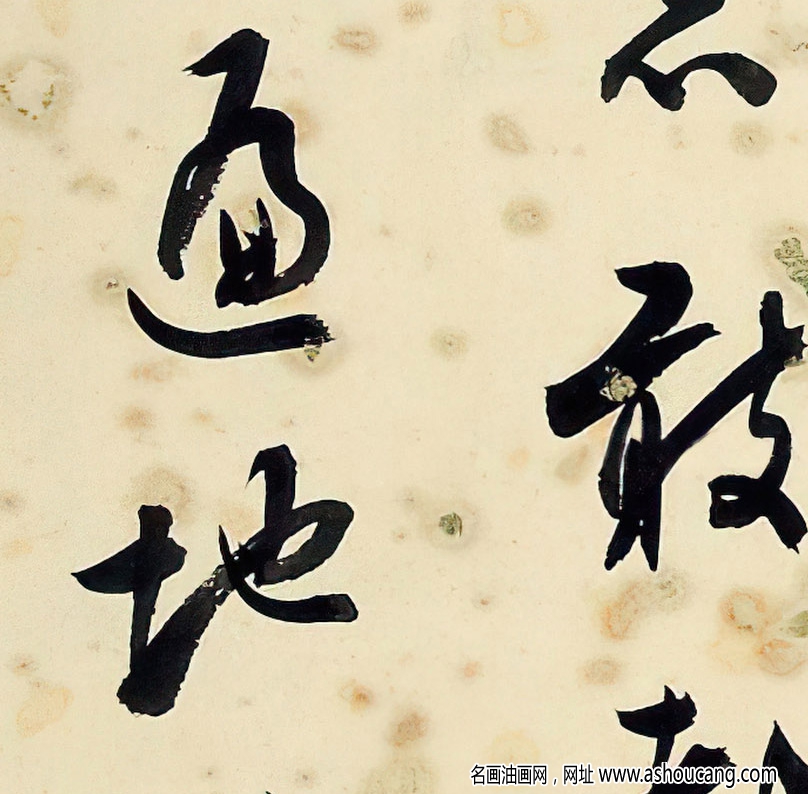 敢
遍地
名画油画网，网址 www.ashoucang.com